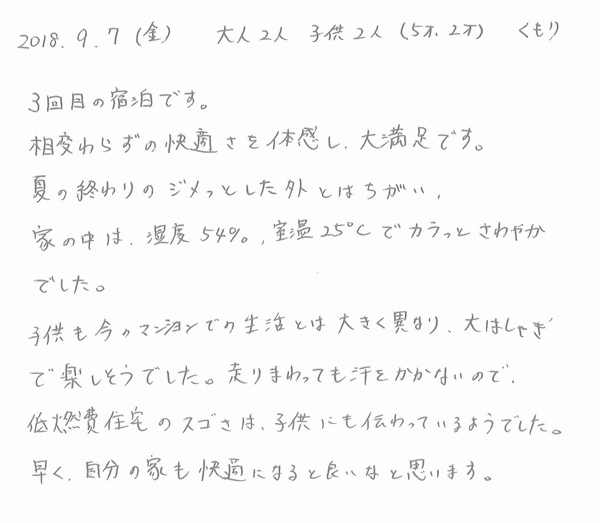 2018.9.7(金) 大人2人 子供2人(5才、2才) くもり
3回目の宿泊です。
相変わらずの快適さを体感し、大満足です。
夏の終わりのジメっとした外とはちがい、
家の中は、湿度54%、室温25℃でカラっとさわやか
でした。
子供も今のマンションでの生活とは大きく異なり、大はしゃぎ
で楽しそうでした。走りまわっても汗をかかないので、
低燃費住宅のスゴさは、子供にも伝わっているようでした。
早く、自分の家も快適になると良いなと思います。